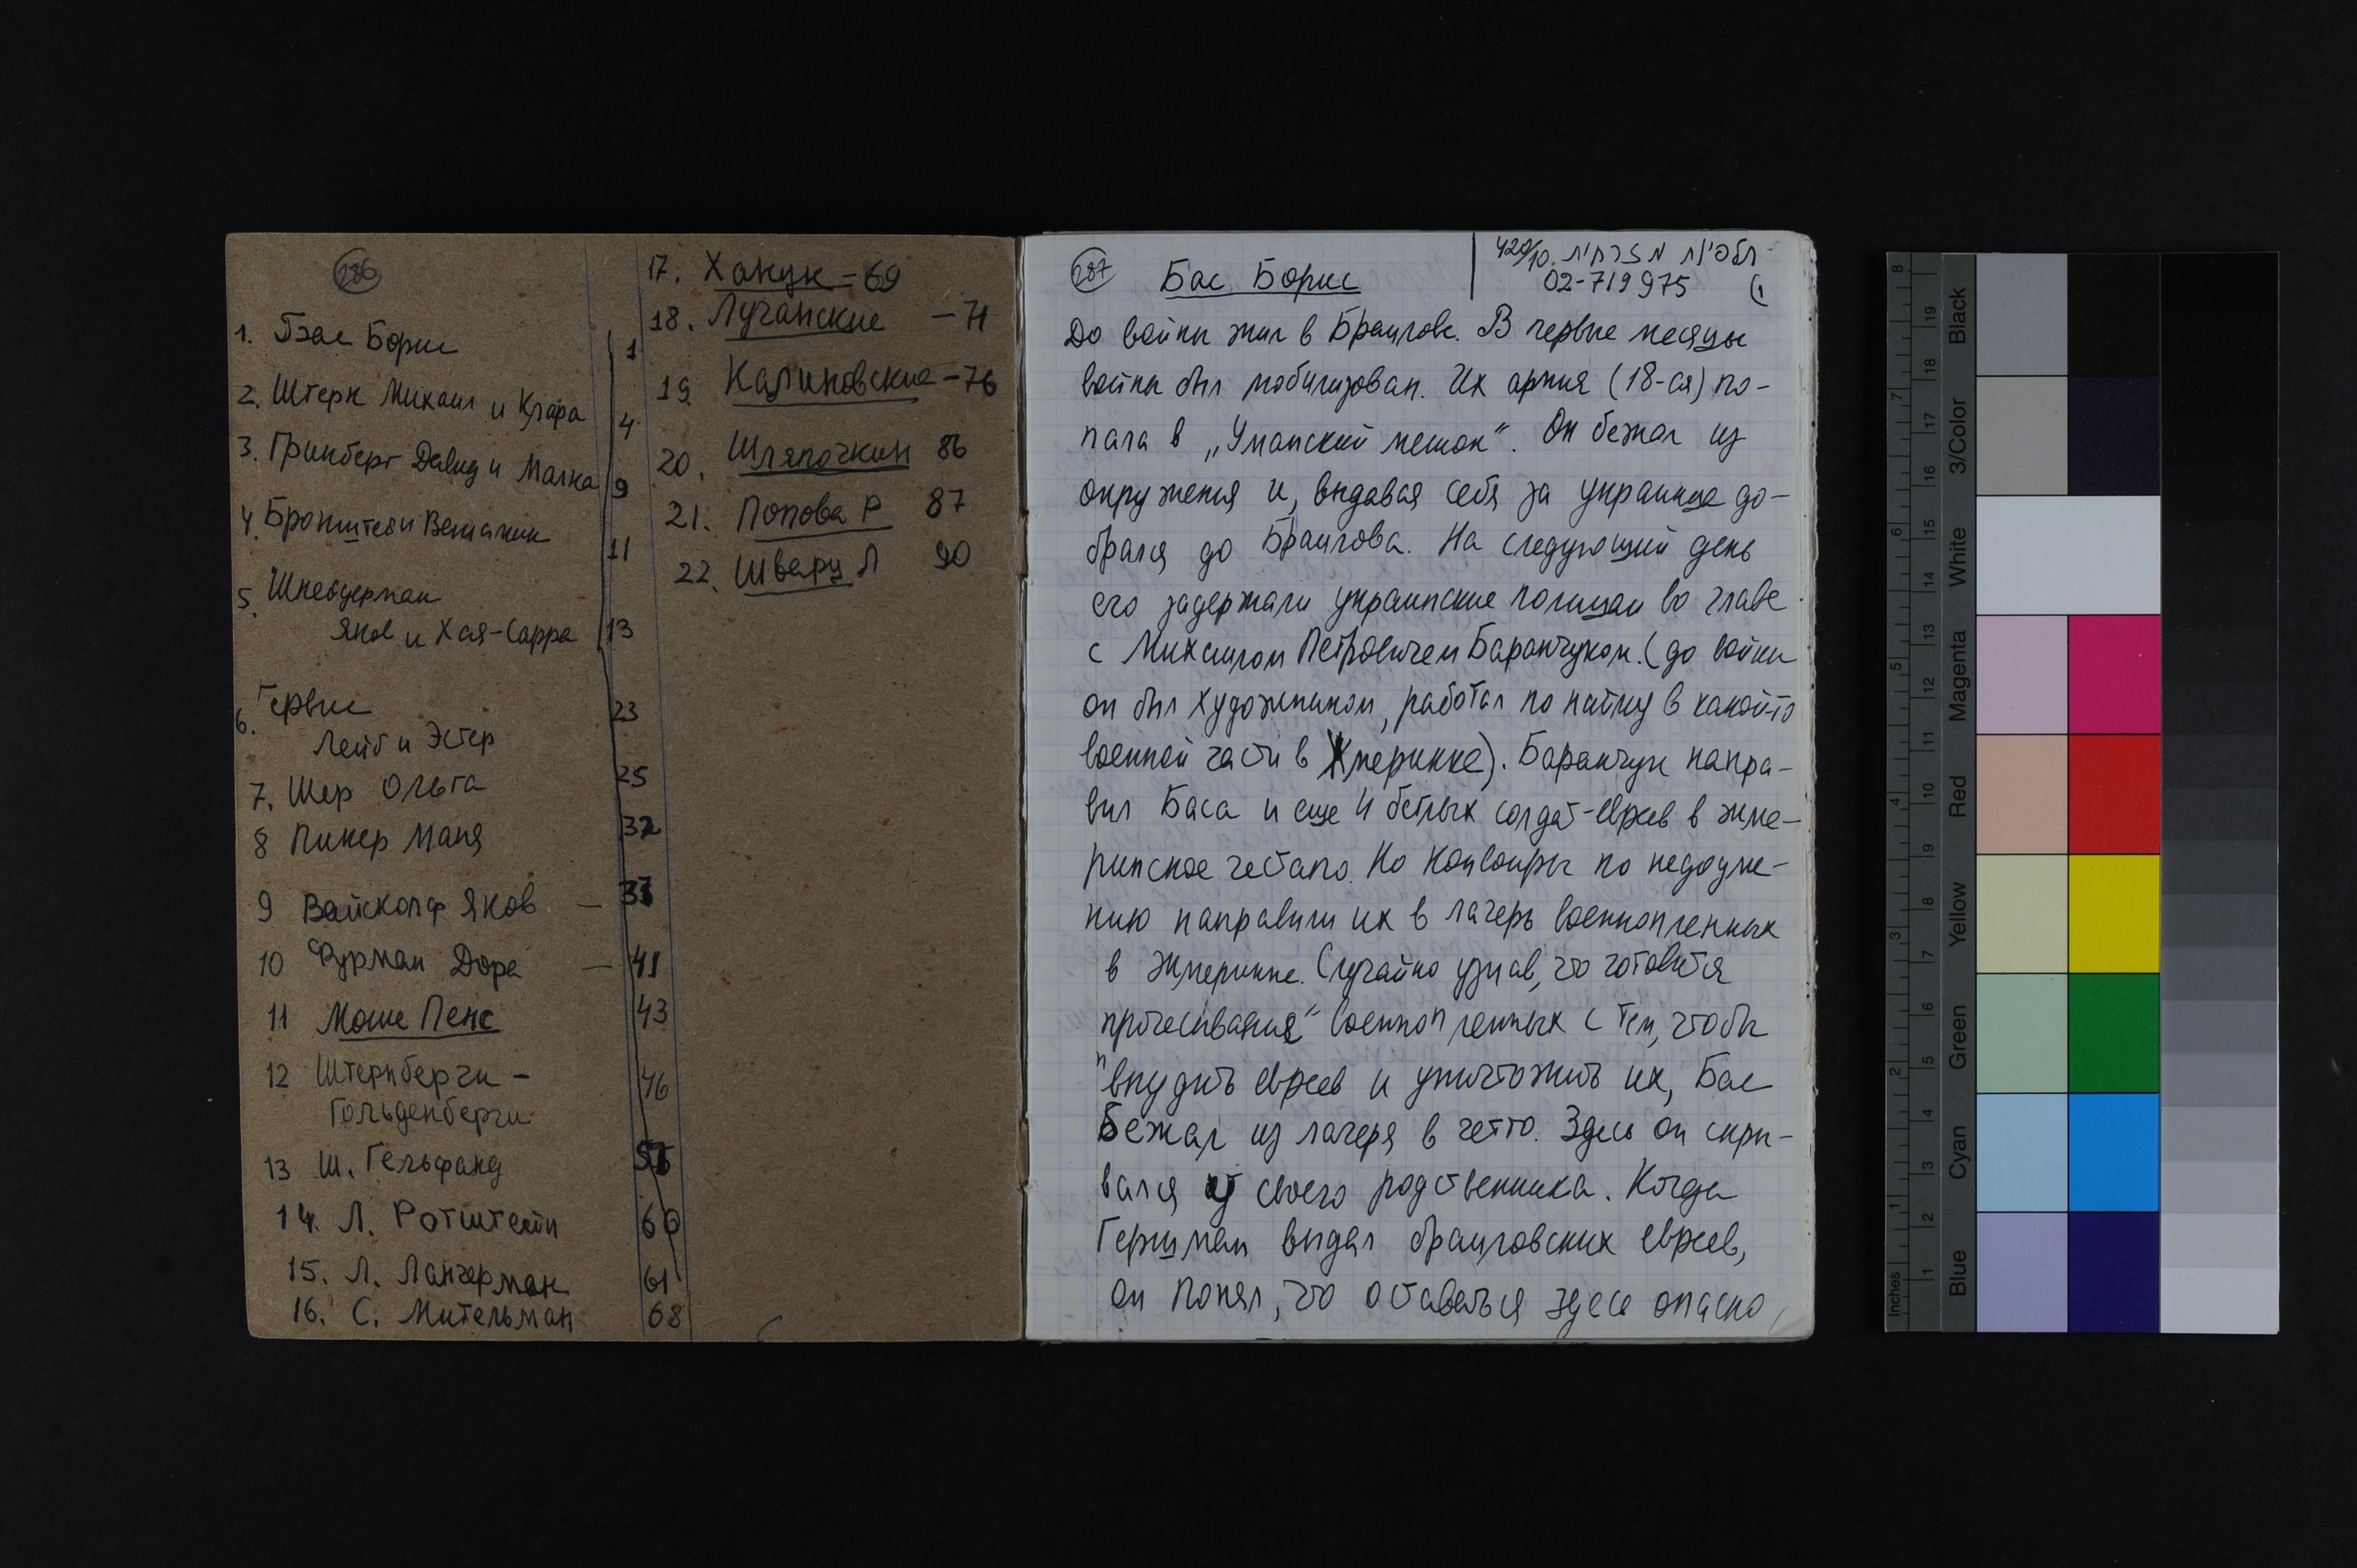 286
1. Бас Борис 1
2. Штерн Михаил и Клара 4
3. Гринберг Давид и Малка 9
4. Бронштейн Вениамин 11
5. Шнейдерман
Яков и Хая-Сарра 13
6. Гервис 23
Лейб и Эстер
7. Шер Ольга 25
8 Пикер Маня 32
9 Вайскопф Яков — 37
10 Фурман Дора — 41
11 Моше Пенс 43
12 Штернберги - 46
Гольденберги
13 Ш. Гельфанд
14. Л. Ротштейн 60
15. Л. Лангерман 61
16. С. Мительман 68
17. Хакук - 69
18. Лучанские - 71
19. Калиновские - 76
20. Шляпочкин 86
21. Попова Р 87
22. Шварц Л 90
287
Бас Борис
420/10
02-719975 (1
До войны жил в Браилове. В первые месяцы
войны был мобилизован. Их армия (18-ая) по-
пала в „Уманский мешок". Он бежал из
окружения и, выдавая себя за украинца до-
брался до Браилова. На следующий день
его задержали украинские полицаи во главе
с Михаилом Петровичем Баранчуком. (до войны
он был художником, работал по найму в какой-то
военной части в Жмеринке). Баранчук напра-
вил Баса и еще 4 беглых солдат-евреев в жме-
ринское гестапо. Но конвоиры по недоуме-
нию направили их в лагерь военнопленных
в Жмеринке. Случайно узнав, что готовится
„прочесывание" военнопленных с тем, чтобы
выудить евреев и уничтожить их, Бас
Бежал из лагеря в гетто. Здесь он скры-
вался у своего родственника. Когда
Гершман выдал браиловских евреев,
он понял, что оставаться здесь опасно,